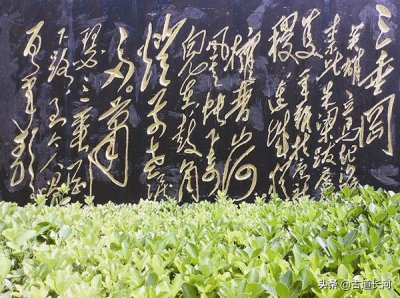 三垂冈
英雄立马起沙陀
奈此朱梁跋扈何
只手难扶唐社
稷连城犹
拥晋山河
风云帐下奇
儿在鼓角
灯前老泪
多萧
瑟三垂冈
下路至今人唱
百年歌
头条 @古道长河